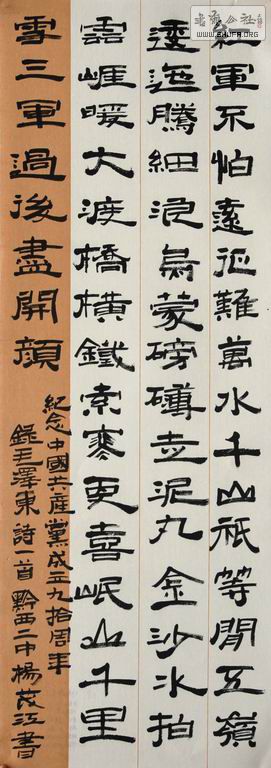 紅軍不怕遠征難萬水千山祇等閒五嶺
逶迤騰細浪烏蒙磅礴走泥丸金沙水拍
雲崕暖大渡橋橫鐵索寒更喜岷山千里
雪三軍過後盡開顏
紀念中國共產黨成立九拾周年
錄毛澤東詩一首黔西二中楊茂江書
書法公社
www.SHUFA.ORG